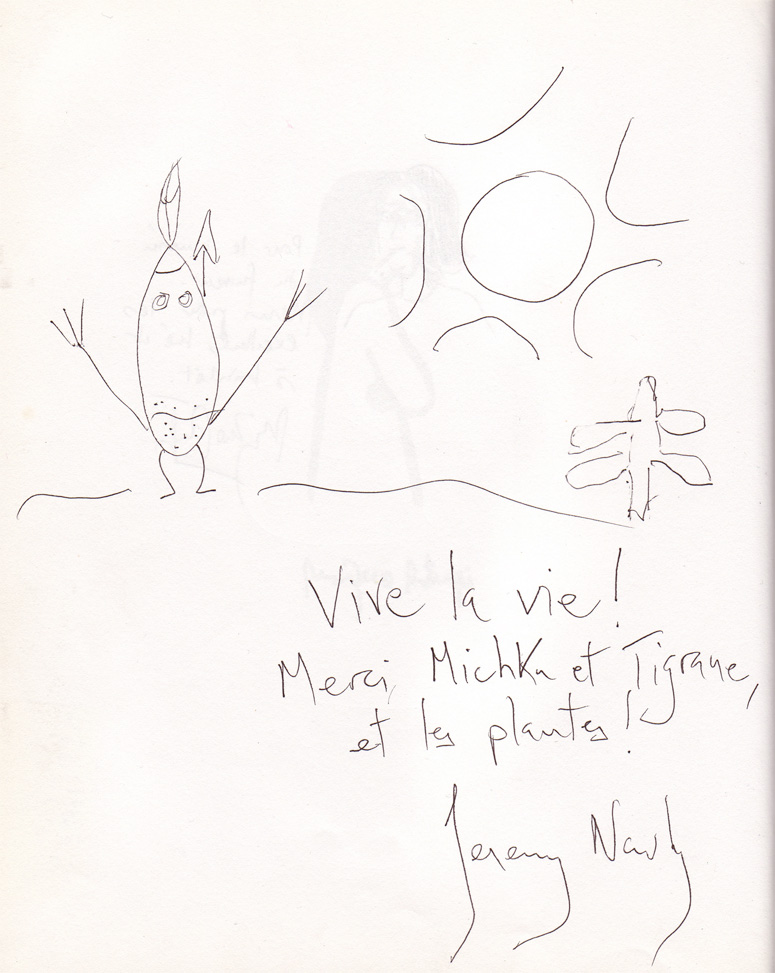 Vive la vie!
Merci, Michka et Tigrane,
et les plantes!
Jeremy Narby